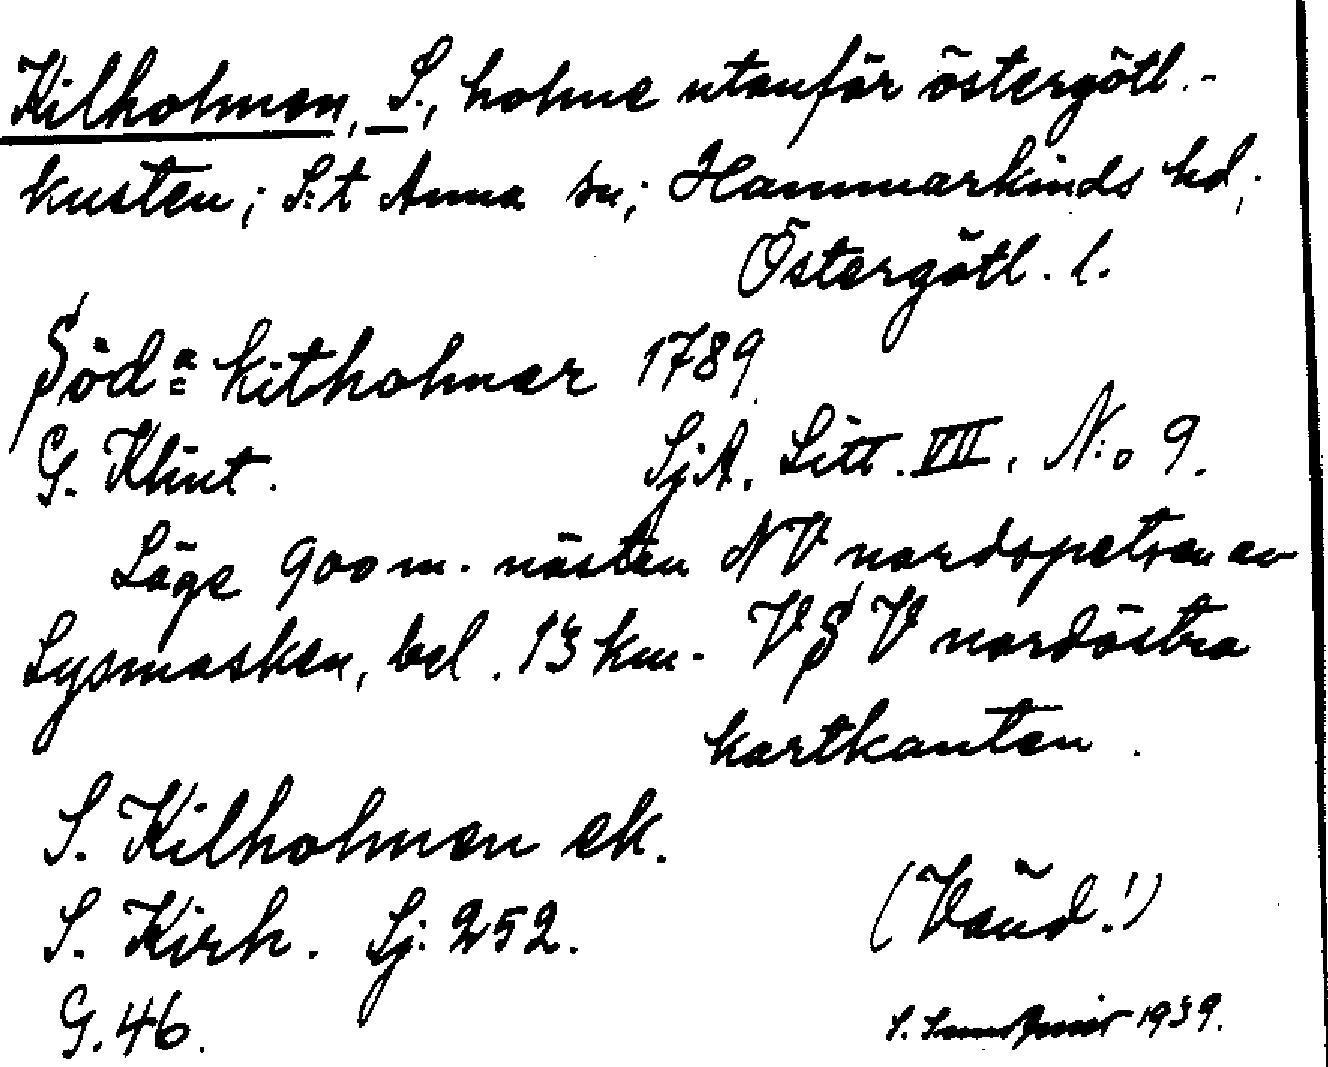 Kilholmen, S., holme utanför östergötl.-
kusten; S:t Anna sn; Hammarkinds hd;
Östergötl. l.
Söd:a kitholmar 1789
G. Klint. SjA. Litt. VII. N:o 9.
Läge 900 m. nästen NV nordspetsen av
Lysmasken, bel. 13 km. VSV nordöstra
kartkanten.
S. Kilholmen ek.
S. Kirh. Sj: 252. (Vänd!)
G. 46. S. 1939.